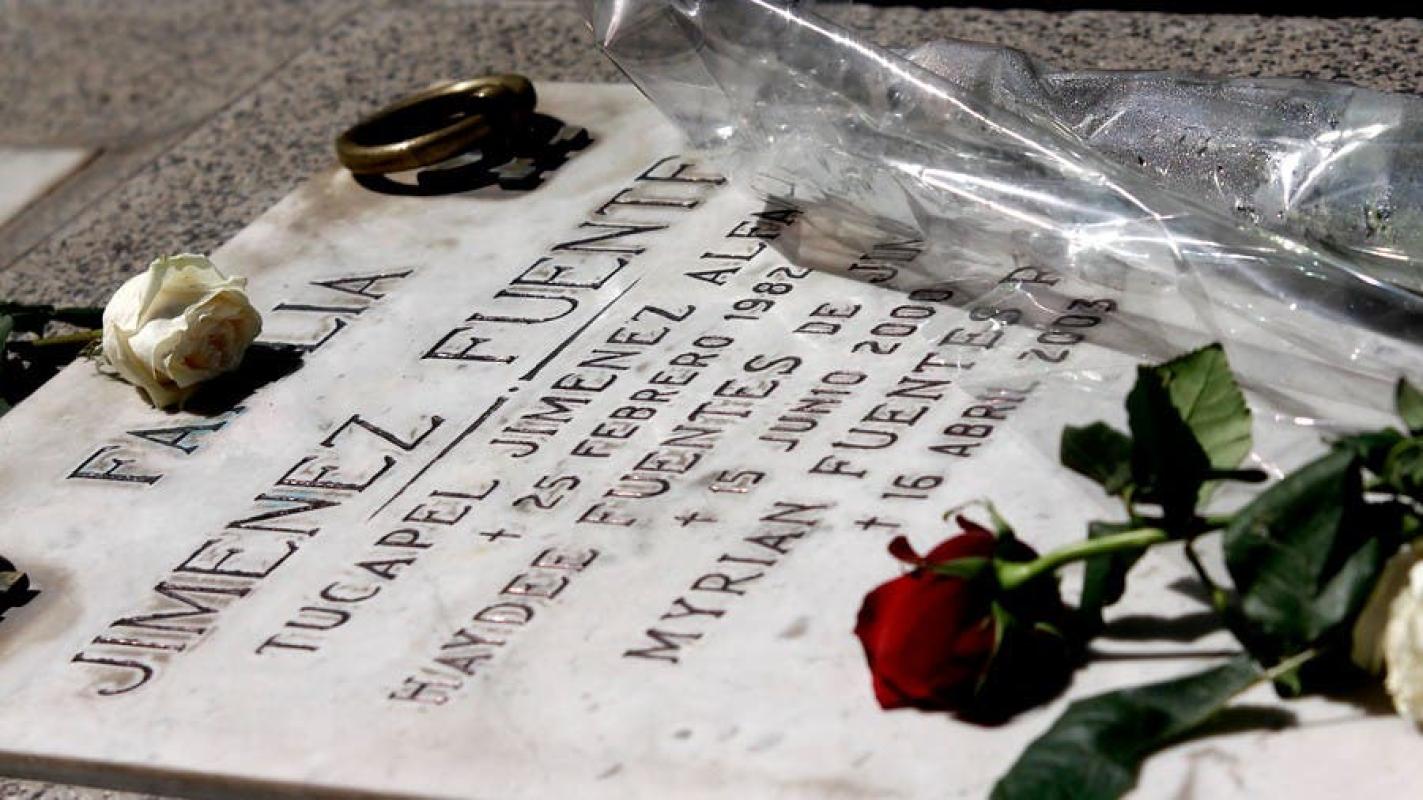 FA LIA
JIMENEZ FUENTE
TUCAPEL JIMENEZ ALFA
+ 25 FEBRERO 1982
HAYDEE FUENTES DE JIM
+ 15 JUNIO 2000
MYRIAN FUENTES R
+ 16 ABRIL 2003